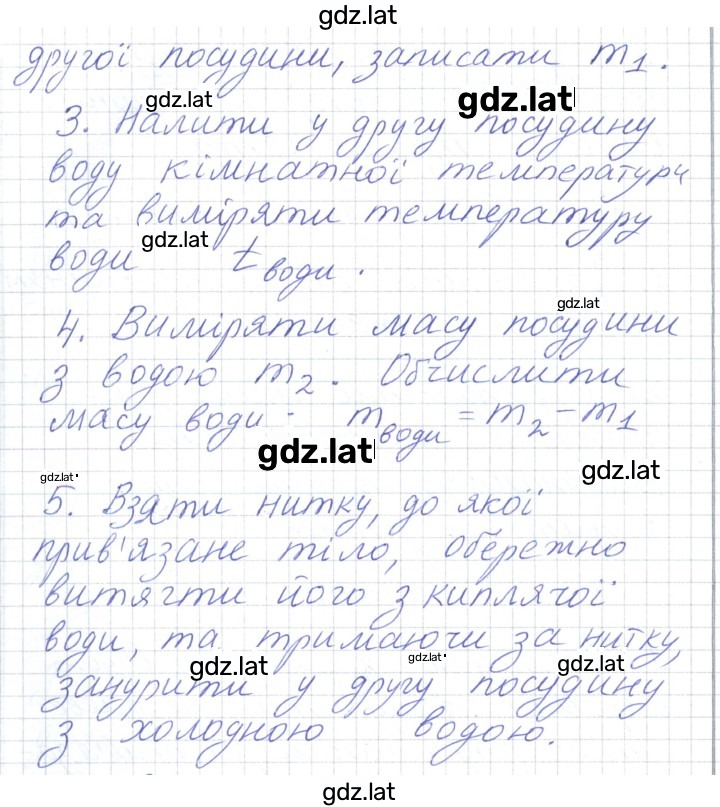 gdz.lat
другої посудини, записати m₁.
gdz.lat gdz.lat
3. Налити у другу посудину
воду кімнатної температури
та виміряти температуру
gdz.lat
води t води.
gdz.lat
4. Виміряти масу посудини
з водою m₂. Обчислити
масу води. m води = m₂ - m₁
gdz.lat gdz.lat
gdz.lat
5. Взяти нитку, до якої
прив'язане тіло, обережно
витягти його з киплячої
води, та тримаючи за нитку,
gdz.lat gdz.lat gdz.lat
занурити у другу посудину
з холодною водою.
gdz.lat